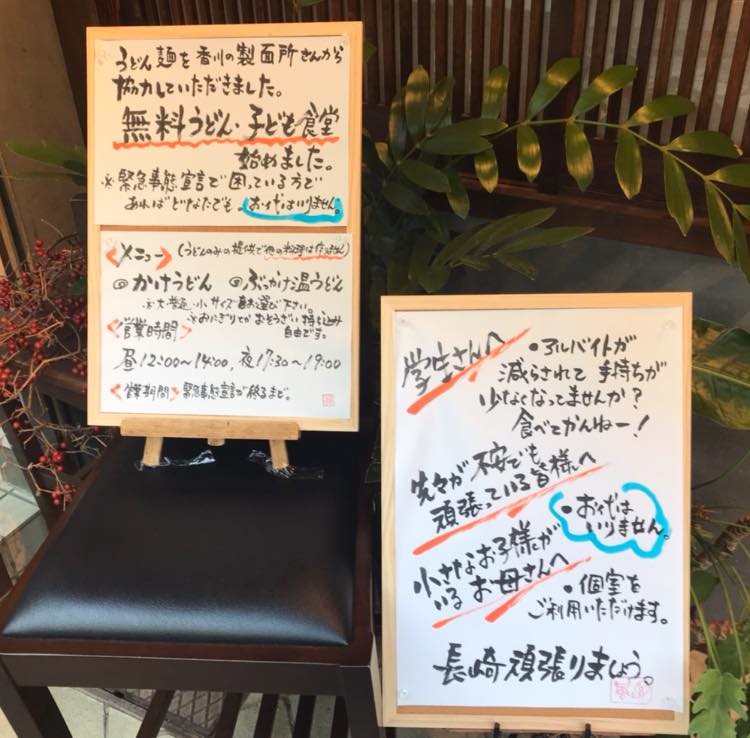 うどん麺を香川の製面所さんから
協力していただきました。
無料うどん・子ども食堂
始めました。
※緊急事態宣言で困っている方で
あればどなたでも。お代はいりません。
<メニュー>(うどんのみの提供で他の料理は作れません)
◎かけうどん ◎ぶっかけ温うどん
※大・普通・小サイズお選び下さい。
※おにぎりとかおそうざい持ち込み
自由です。
<営業時間>
昼12:00〜14:00、夜17:30〜19:00
<営業期間>緊急事態宣言が終るまで。
学生さんへ
・アルバイトが
減らされて手持ちが
少なくなってませんか?
食べてかんねー!
先々が不安でも
頑張っている皆様へ
・お代は
いりません。
小さなお子様が
いるお母さんへ
・個室を
ご利用いただけます。
長崎頑張りましょう。